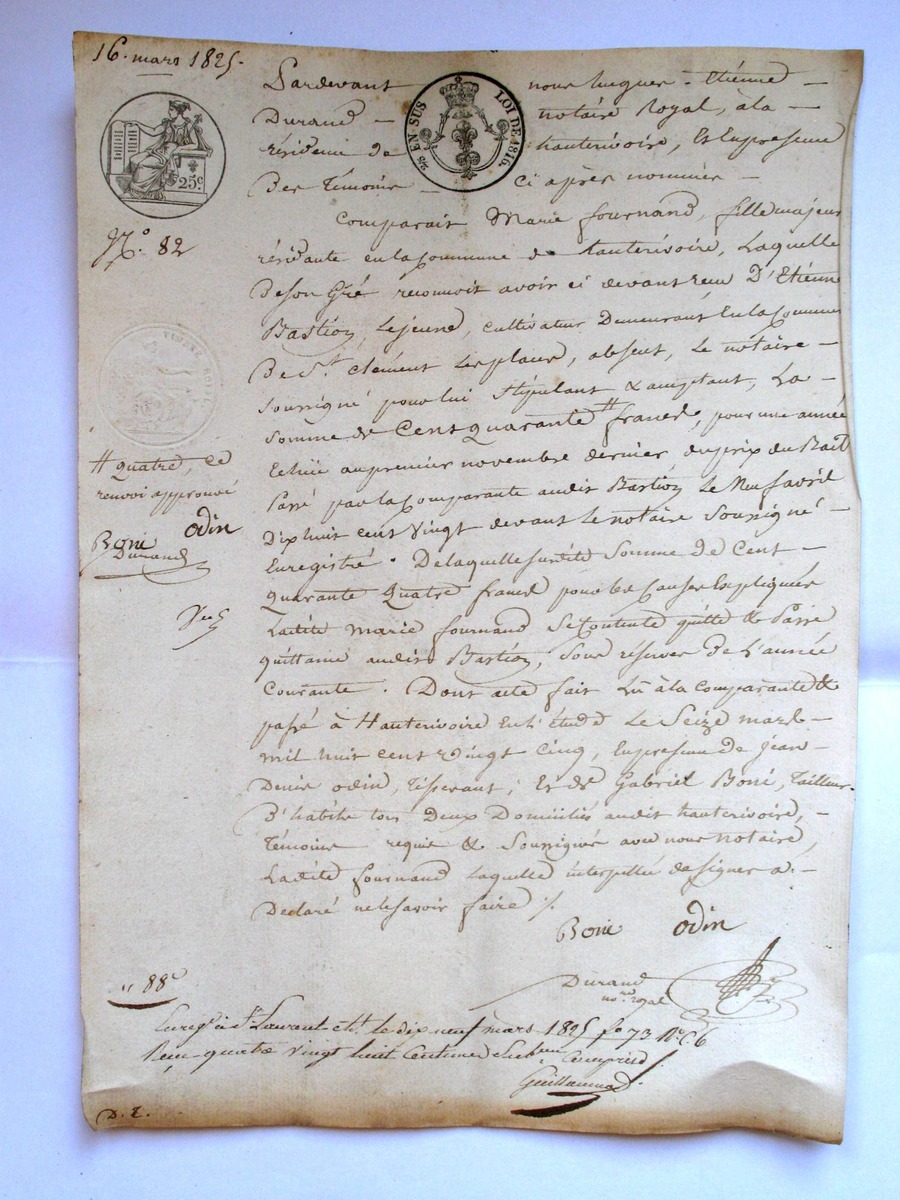 16. mars 1825.
25c
2/5 EN SUS LOI DE 1816.
No. 82
TIMBRE ROYAL
Pardevant nous huques - Etiénne -
Durand - notaire Royal, à la -
résidence de hauterivoire, Et En presence
Des Témoins - ci après nommés -
Comparait Marie fournand, fille majeure
résidante en la Commune de hauterivoire, Laquelle
De son Gré reconnoit avoir ci devant reçu D'Etiénne
Bastion, Lejeune, cultivateur Demeurant En la Commune
De St. clément Les places, absent, Le notaire -
Soussigné pour lui Stipulant & acceptant, La -
Somme de Cent quarante # francs, pour une année
Echüe au premier novembre dernier du prix du Bail
Passé par la Comparante audit Bastion Le Neuf avril
Dix huit cent vingt devant Le notaire Soussigné -
Enregistré. De laquelle susdite Somme de Cent -
quarante Quatre francs pour les causes Expliquées
Ladite Marie fournand Se Contente quitte & Passe
quittance audit Bastion, Sous reserves de L'année
Courante. Dont acte fait Lu à la comparante &
passé à Hauterivoire En L'étude Le Seize mars -
mil huit cent vingt cinq, En presence de jean -
Denis odin, Tisserant, Et de Gabriel Boné, Tailleur
D'habits tous Deux Domiciliés audit hauterivoire, -
Témoins requis & Soussignés avec nous notaire,
Ladite fournand Laquelle interpellée de signer a -
Declaré ne le savoir faire ./.
# quatre, ce
renvoi approuvé
Boné odin
Durand
Boné odin
Durand
nore. royal
" 88c
Enregé à St. Laurent le dix neuf mars 1825 fo 73
Reçu quatre vingt huit Centimes Compris
Guillaumod
D. E.